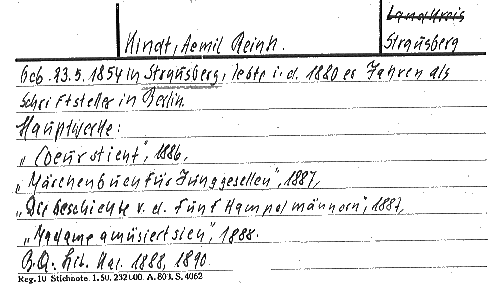 Landkreis
Hindt, Aemil Reinh. Strausberg
Geb. 23.5.1854 in Strausberg, lebte i. d. 1880er Jahren als
Schriftsteller in Berlin.
Hauptwerke:
„Coeur sticht", 1886,
„Märchenbuch für Junggesellen", 1887,
„Die Geschichte v. d. fünf Hampelmännern", 1887,
„Madame amüsiert sich", 1888.
B.Q.: Lit. Kal. 1888, 1890
Reg. 10 Stichnote. 1. 50. 232100. A. 803. S. 4062